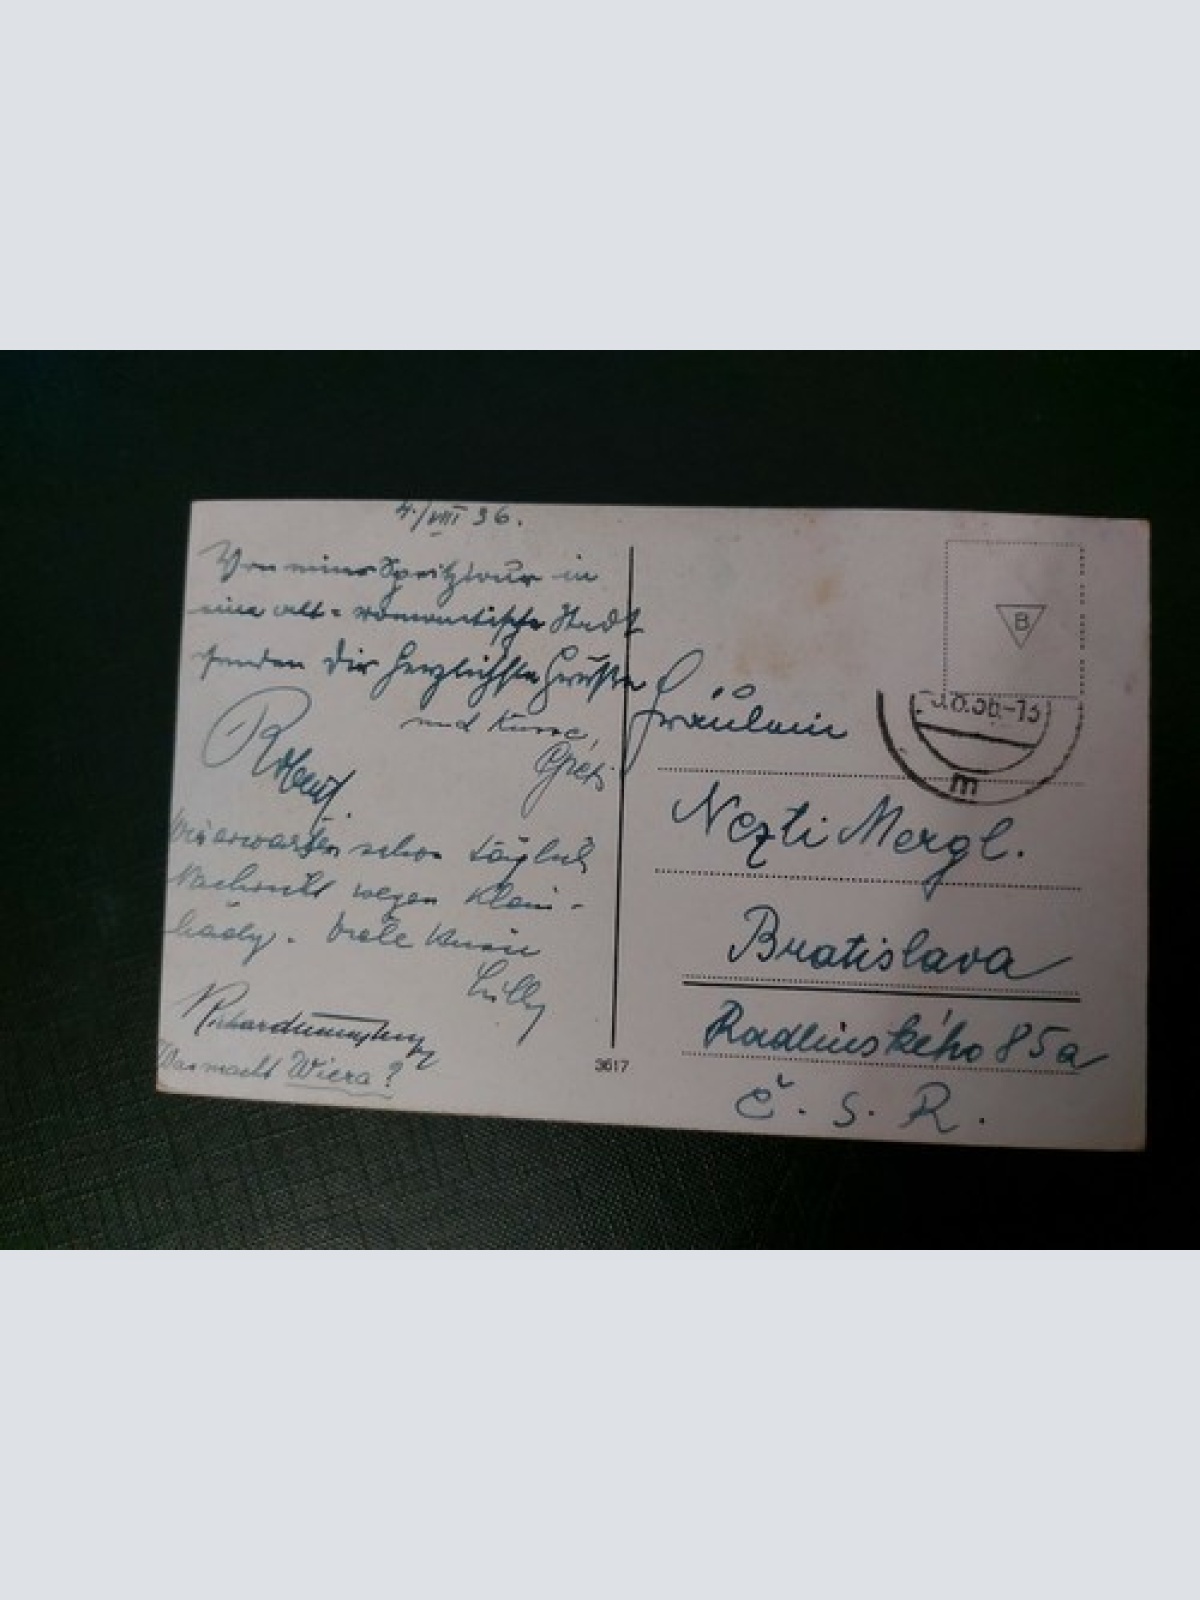 4./VIII 36.
Von einer Spritztour in
eine alt-romantische Stadt
senden Dir herzlichste Grüße
und Küsse,
Robert
erwarten schon täglich
Nachricht wegen Klein-
hady. Viele Küsse
Lilly
Richard
Was macht Wiera?
B
.8.36-13
m
Fräulein
Nezti Mergl.
Bratislava
Radlinského 85a
Č. S. R.
3617